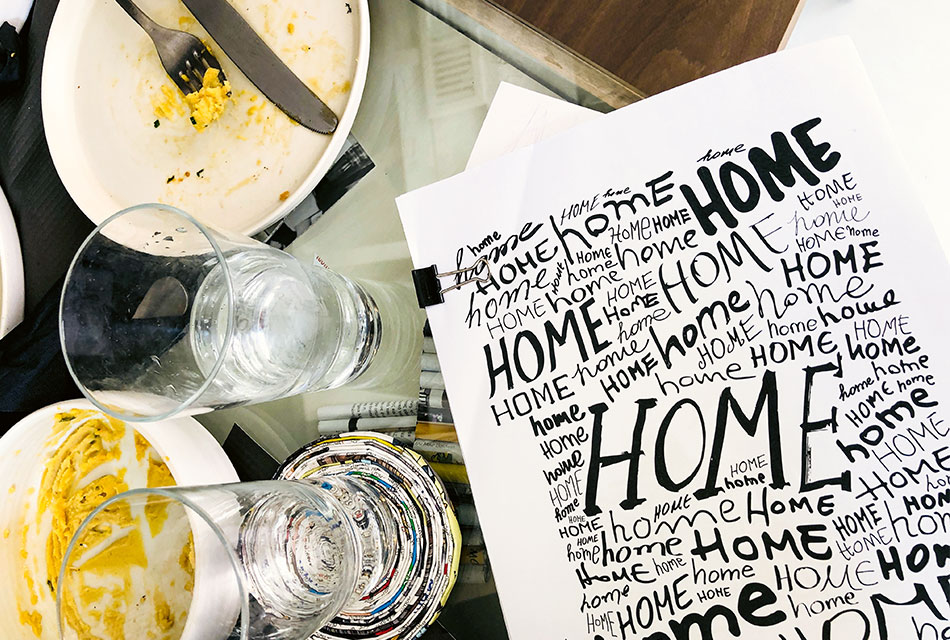 home
HOME
HOME home home HOME
home home HOME HOME HOME home home
HOME home HOME home HOME HOME home
home home home HOME HOME
HOME home HOME HOME home
HOME home home home HOME home home
HOME home HOME HOME home HOME HOME
home HOME home home
home HOME home HOME home
HOME home
home HOME HOME
HOME home HOME
home HOME home HOME
HOME home HOME home HOME HOME home
home home HOME HOME
home home home HOME HOME
home HOME HOME home home
HOME home HOME HOME